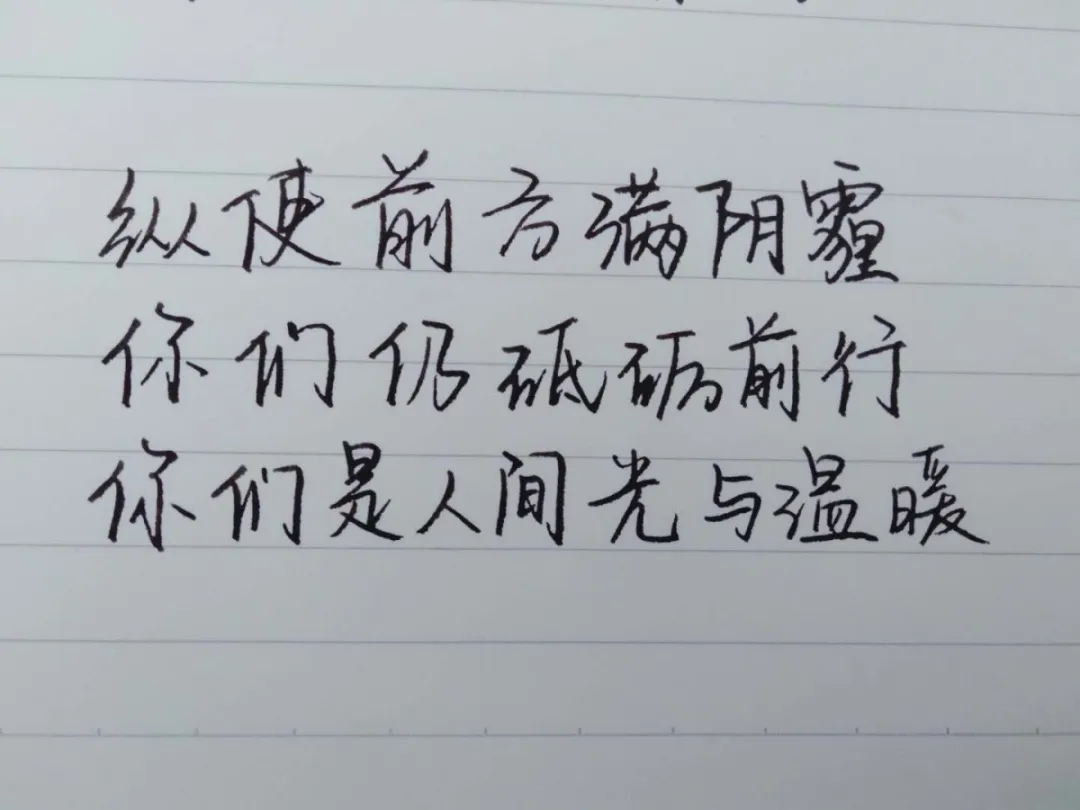 纵使前方满阴霾
你们仍砥砺前行
你们是人间光与温暖